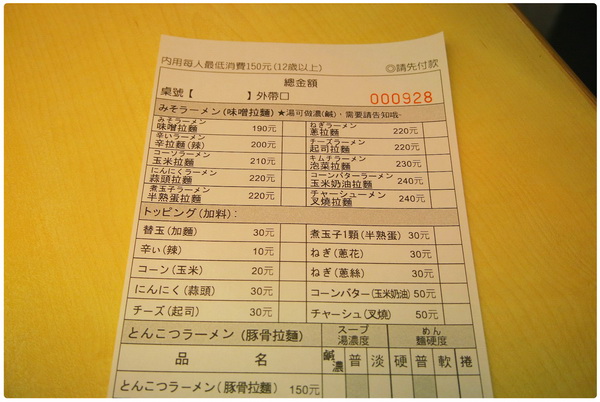 內用每人最低消費150元(12歲以上) ◎請先付款
總金額
桌號【 】外帶口 000928
みそラーメン(味噌拉麵) ★湯可做濃(鹹)，需要請告知哦~
みそラーメン ねぎラーメン
味噌拉麵 190元 蔥拉麵 220元
辛いラーメン チーズラーメン
辛拉麵(辣) 200元 起司拉麵 220元
コーンラーメン キムチラーメン
玉米拉麵 210元 泡菜拉麵 230元
にんにくラーメン コーンバターラーメン
蒜頭拉麵 220元 玉米奶油拉麵 240元
煮玉子ラーメン チャーシューメン
半熟蛋拉麵 220元 叉燒拉麵 240元
トッピング(加料)：
替玉(加麵) 30元 煮玉子1顆(半熟蛋) 30元
辛い(辣) 10元 ねぎ(蔥花) 30元
コーン(玉米) 20元 ねぎ(蔥絲) 30元
にんにく(蒜頭) 30元 コーンバター(玉米奶油) 50元
チーズ(起司) 30元 チャーシュ(叉燒) 50元
とんこつラーメン(豚骨拉麵) スープ めん
湯濃度 麵硬度
品 名 鹹濃 普 淡 硬 普 軟 捲
とんこつラーメン(豚骨拉麵) 150元